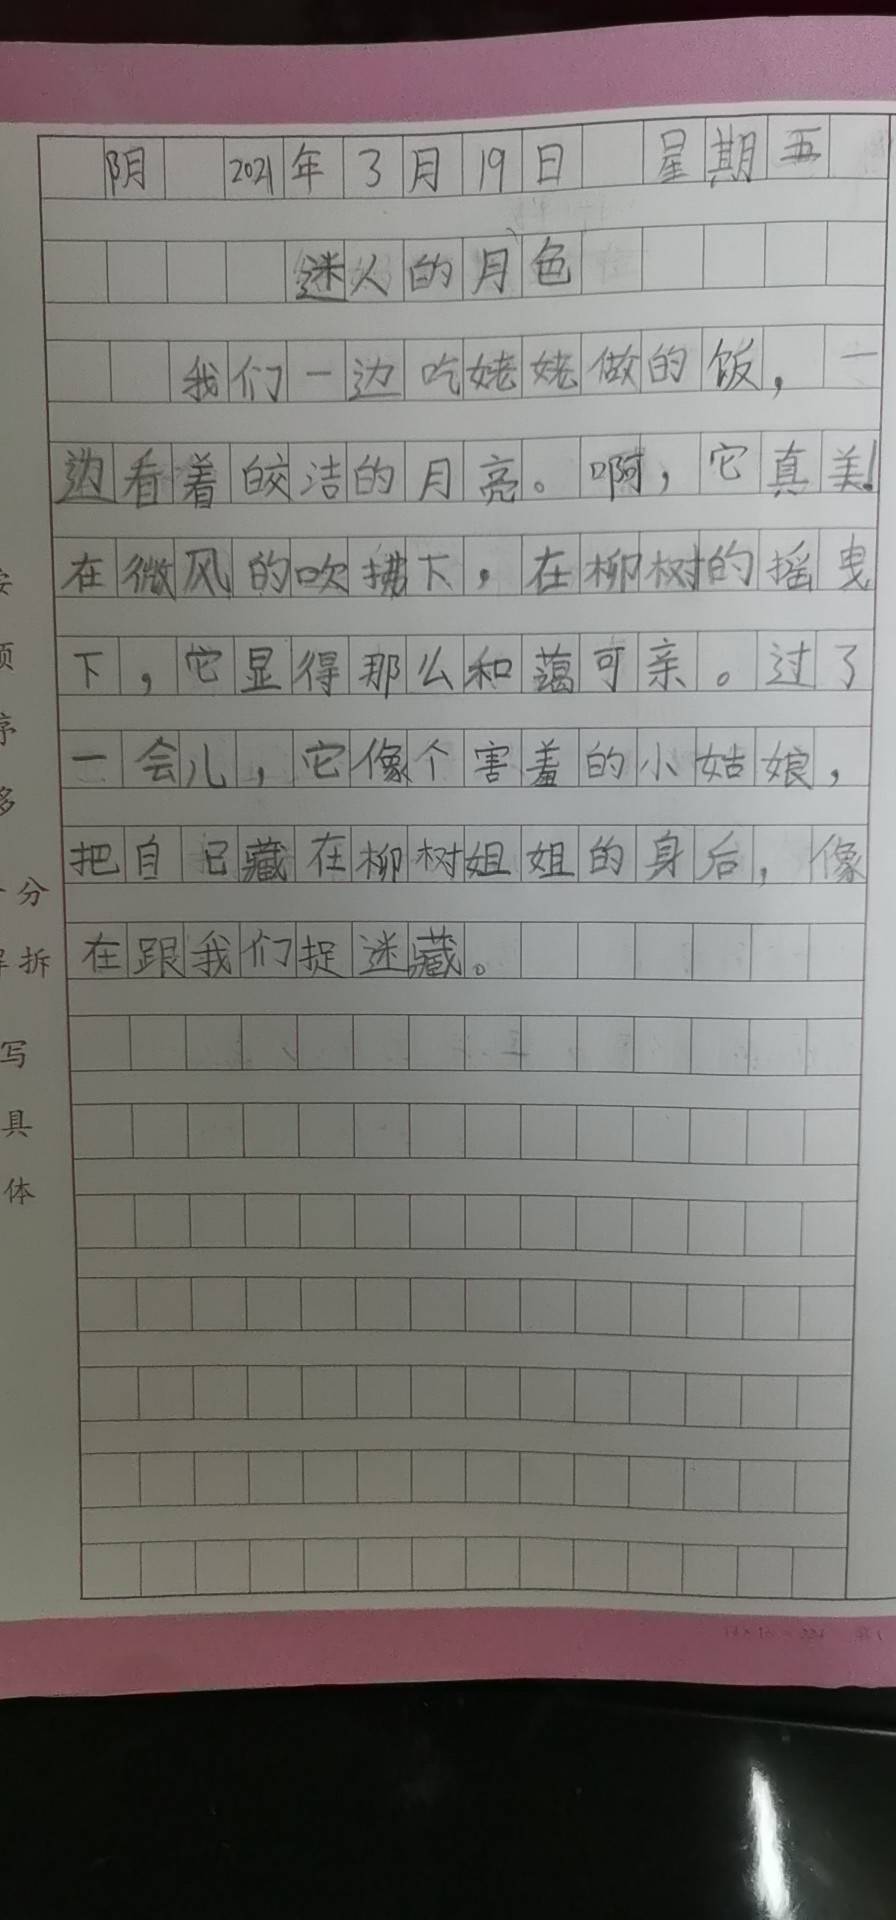 阴 2021年3月19日 星期五
迷人的月色
我们一边吃姥姥做的饭，一
边看着皎洁的月亮。啊，它真美！
在微风的吹拂下，在柳树的摇曳
下，它显得那么和蔼可亲。过了
一会儿，它像个害羞的小姑娘，
把自己藏在柳树姐姐的身后，像
在跟我们捉迷藏。
分
拆
写
具
体